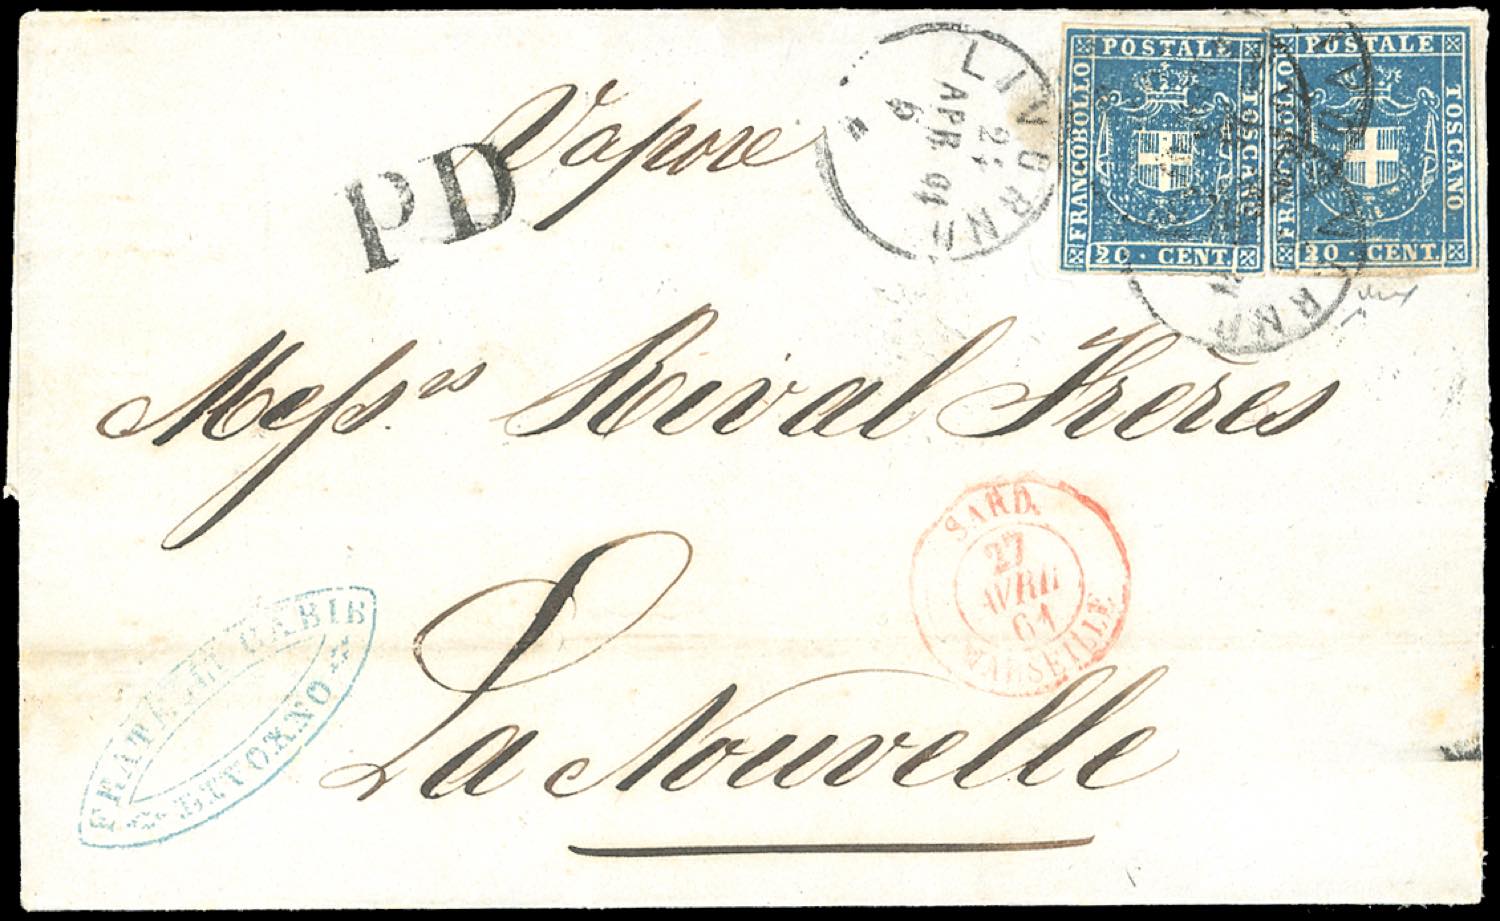 Vapore
PD
LIVORNO
24
APR 61
6
FRANCOBOLLO POSTALE TOSCANO
20 · CENT.
FRANCOBOLLO POSTALE TOSCANO
20 · CENT.
LIVORNO
Messrs Rival Frères
SARD.
27
AVRIL
61
MARSEILLE
La Nouvelle
FRATELLI
LIVORNO